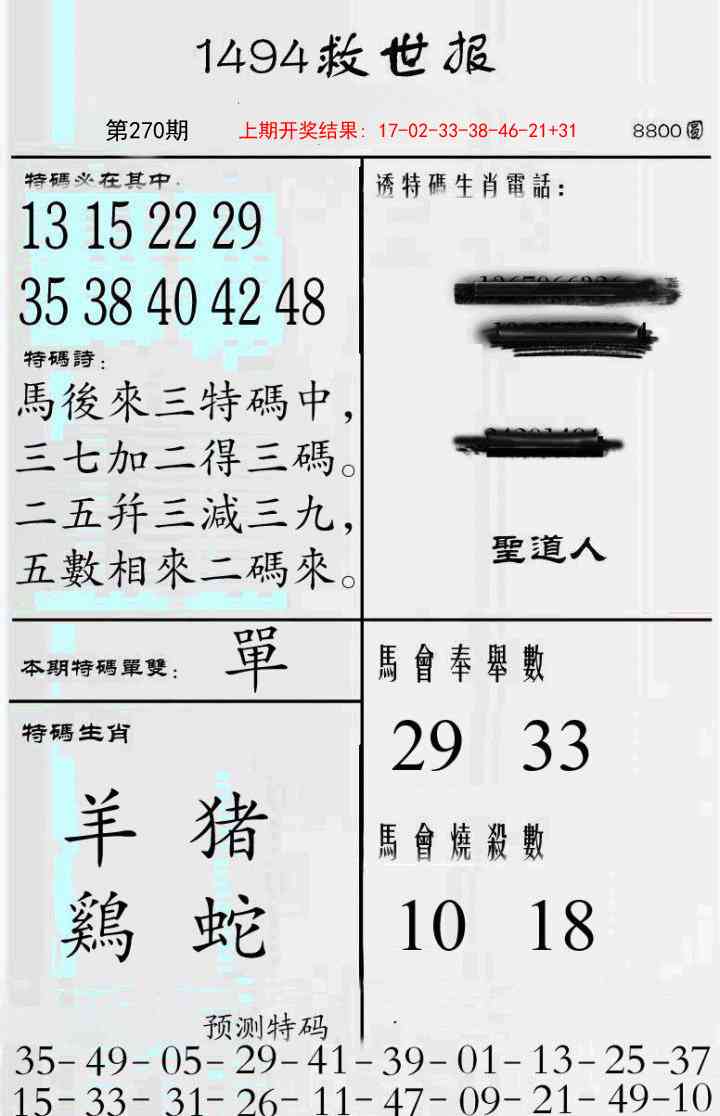 1494救世报
第270期 上期开奖结果：17-02-33-38-46-21+31 8800圆
特碼必在其中：
13 15 22 29
35 38 40 42 48
特碼詩：
馬後來三特碼中，
三七加二得三碼。
二五幷三減三九，
五數相來二碼來。
透特碼生肖電話：
聖道人
本期特碼單雙： 單
特碼生肖
羊 猪
鷄 蛇
馬會奉舉數
29 33
馬會燒殺數
10 18
预测特码
35-49-05-29-41-39-01-13-25-37
15-33-31-26-11-47-09-21-49-10